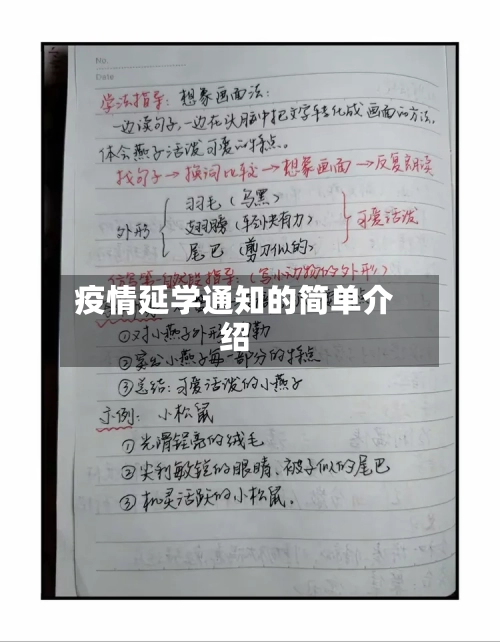 No.
Date
学法指导：想象画面法：
一边读句子，一边在头脑中把文字转化成画面的方法，
体会燕子活泼可爱的特点。
找句子→换词比较→想象画面→反复朗读
外形
羽毛（乌黑）
翅膀（轻快有力）
尾巴（剪刀似的）
可爱活泼
仿写第一自然段指导：（写小动物的外形）
疫情延学通知的简单介
绍
①对小燕子外形
②突出小燕子每一部分的特点
③总结：可爱活泼的小燕子
示例：小松鼠
①光滑锃亮的绒毛
②尖利敏锐的眼睛、被子似的尾巴
③机灵活跃的小松鼠.